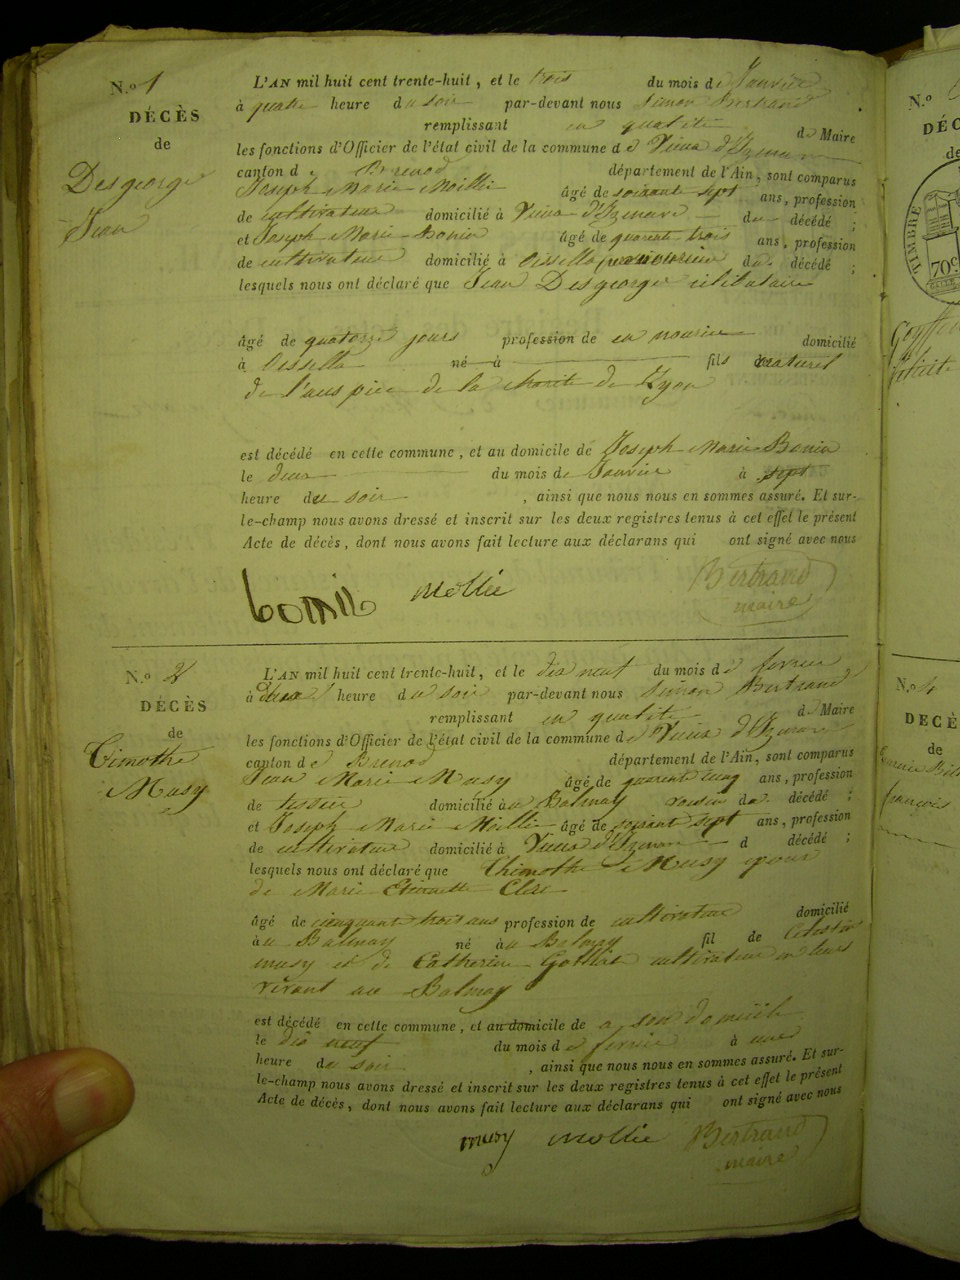 N.o 1
DÉCÈS
de
Desgeorge
Jean
L'AN mil huit cent trente-huit, et le trois du mois de Janvier
à quatre heure du soir par-devant nous Simon Bertrand
remplissant en qualité de Maire
les fonctions d'Officier de l'état civil de la commune de Vieux d'Izenave
canton de Brenod département de l'Ain, sont comparus
Joseph Marie Moillie âgé de soixante sept ans, profession
de cultivateur domicilié à Vieux d'Izenave du décédé ;
et Joseph Marie Bonin âgé de quarante trois ans, profession
de cultivateur domicilié à Oisselaz du décédé ;
lesquels nous ont déclaré que Jean Desgeorge célibataire
âgé de quatorze jours profession de en nourice domicilié
à Oissella né à fils naturel
de l'auspice de la charité de Lyon
est décédé en cette commune, et au domicile de Joseph Marie Bonin
le deux du mois de Janvier à sept
heure du soir , ainsi que nous nous en sommes assuré. Et sur-
le-champ nous avons dressé et inscrit sur les deux registres tenus à cet effet le présent
Acte de décès, dont nous avons fait lecture aux déclarans qui ont signé avec nous
bonin mollie Bertrand
maire
N.o 2
DÉCÈS
de
Timothe
Musy
L'AN mil huit cent trente-huit, et le dix neuf du mois de fevrier
à deux heure du soir par-devant nous Simon Bertrand
remplissant en qualité de Maire
les fonctions d'Officier de l'état civil de la commune de Vieux d'Izenave
canton de Brenod département de l'Ain, sont comparus
Jean Marie Musy âgé de quarante cinq ans, profession
de tessier domicilié au Balmay voisin du décédé ;
et Joseph Marie Moillie âgé de soixante sept ans, profession
de cultivateur domicilié à Vieux d'Izenave d décédé ;
lesquels nous ont déclaré que Thimothe Musy epoux
de Marie Etienette Clerc
âgé de cinquante trois ans profession de cultivateur domicilié
au Balmay né au Balmay fil de Celestin
musy et de Catherine cultivateur en leurs
vivant au Balmay
est décédé en cette commune, et au domicile de a son domicile
le dix neuf du mois de fevrier à une
heure du soir , ainsi que nous nous en sommes assuré. Et sur-
le-champ nous avons dressé et inscrit sur les deux registres tenus à cet effet le présent
Acte de décès, dont nous avons fait lecture aux déclarans qui ont signé avec nous
musy mollie Bertrand
maire
N.o
DÉC
de
TIMBRE
70c
N.o 4
DECÈ
de
françois